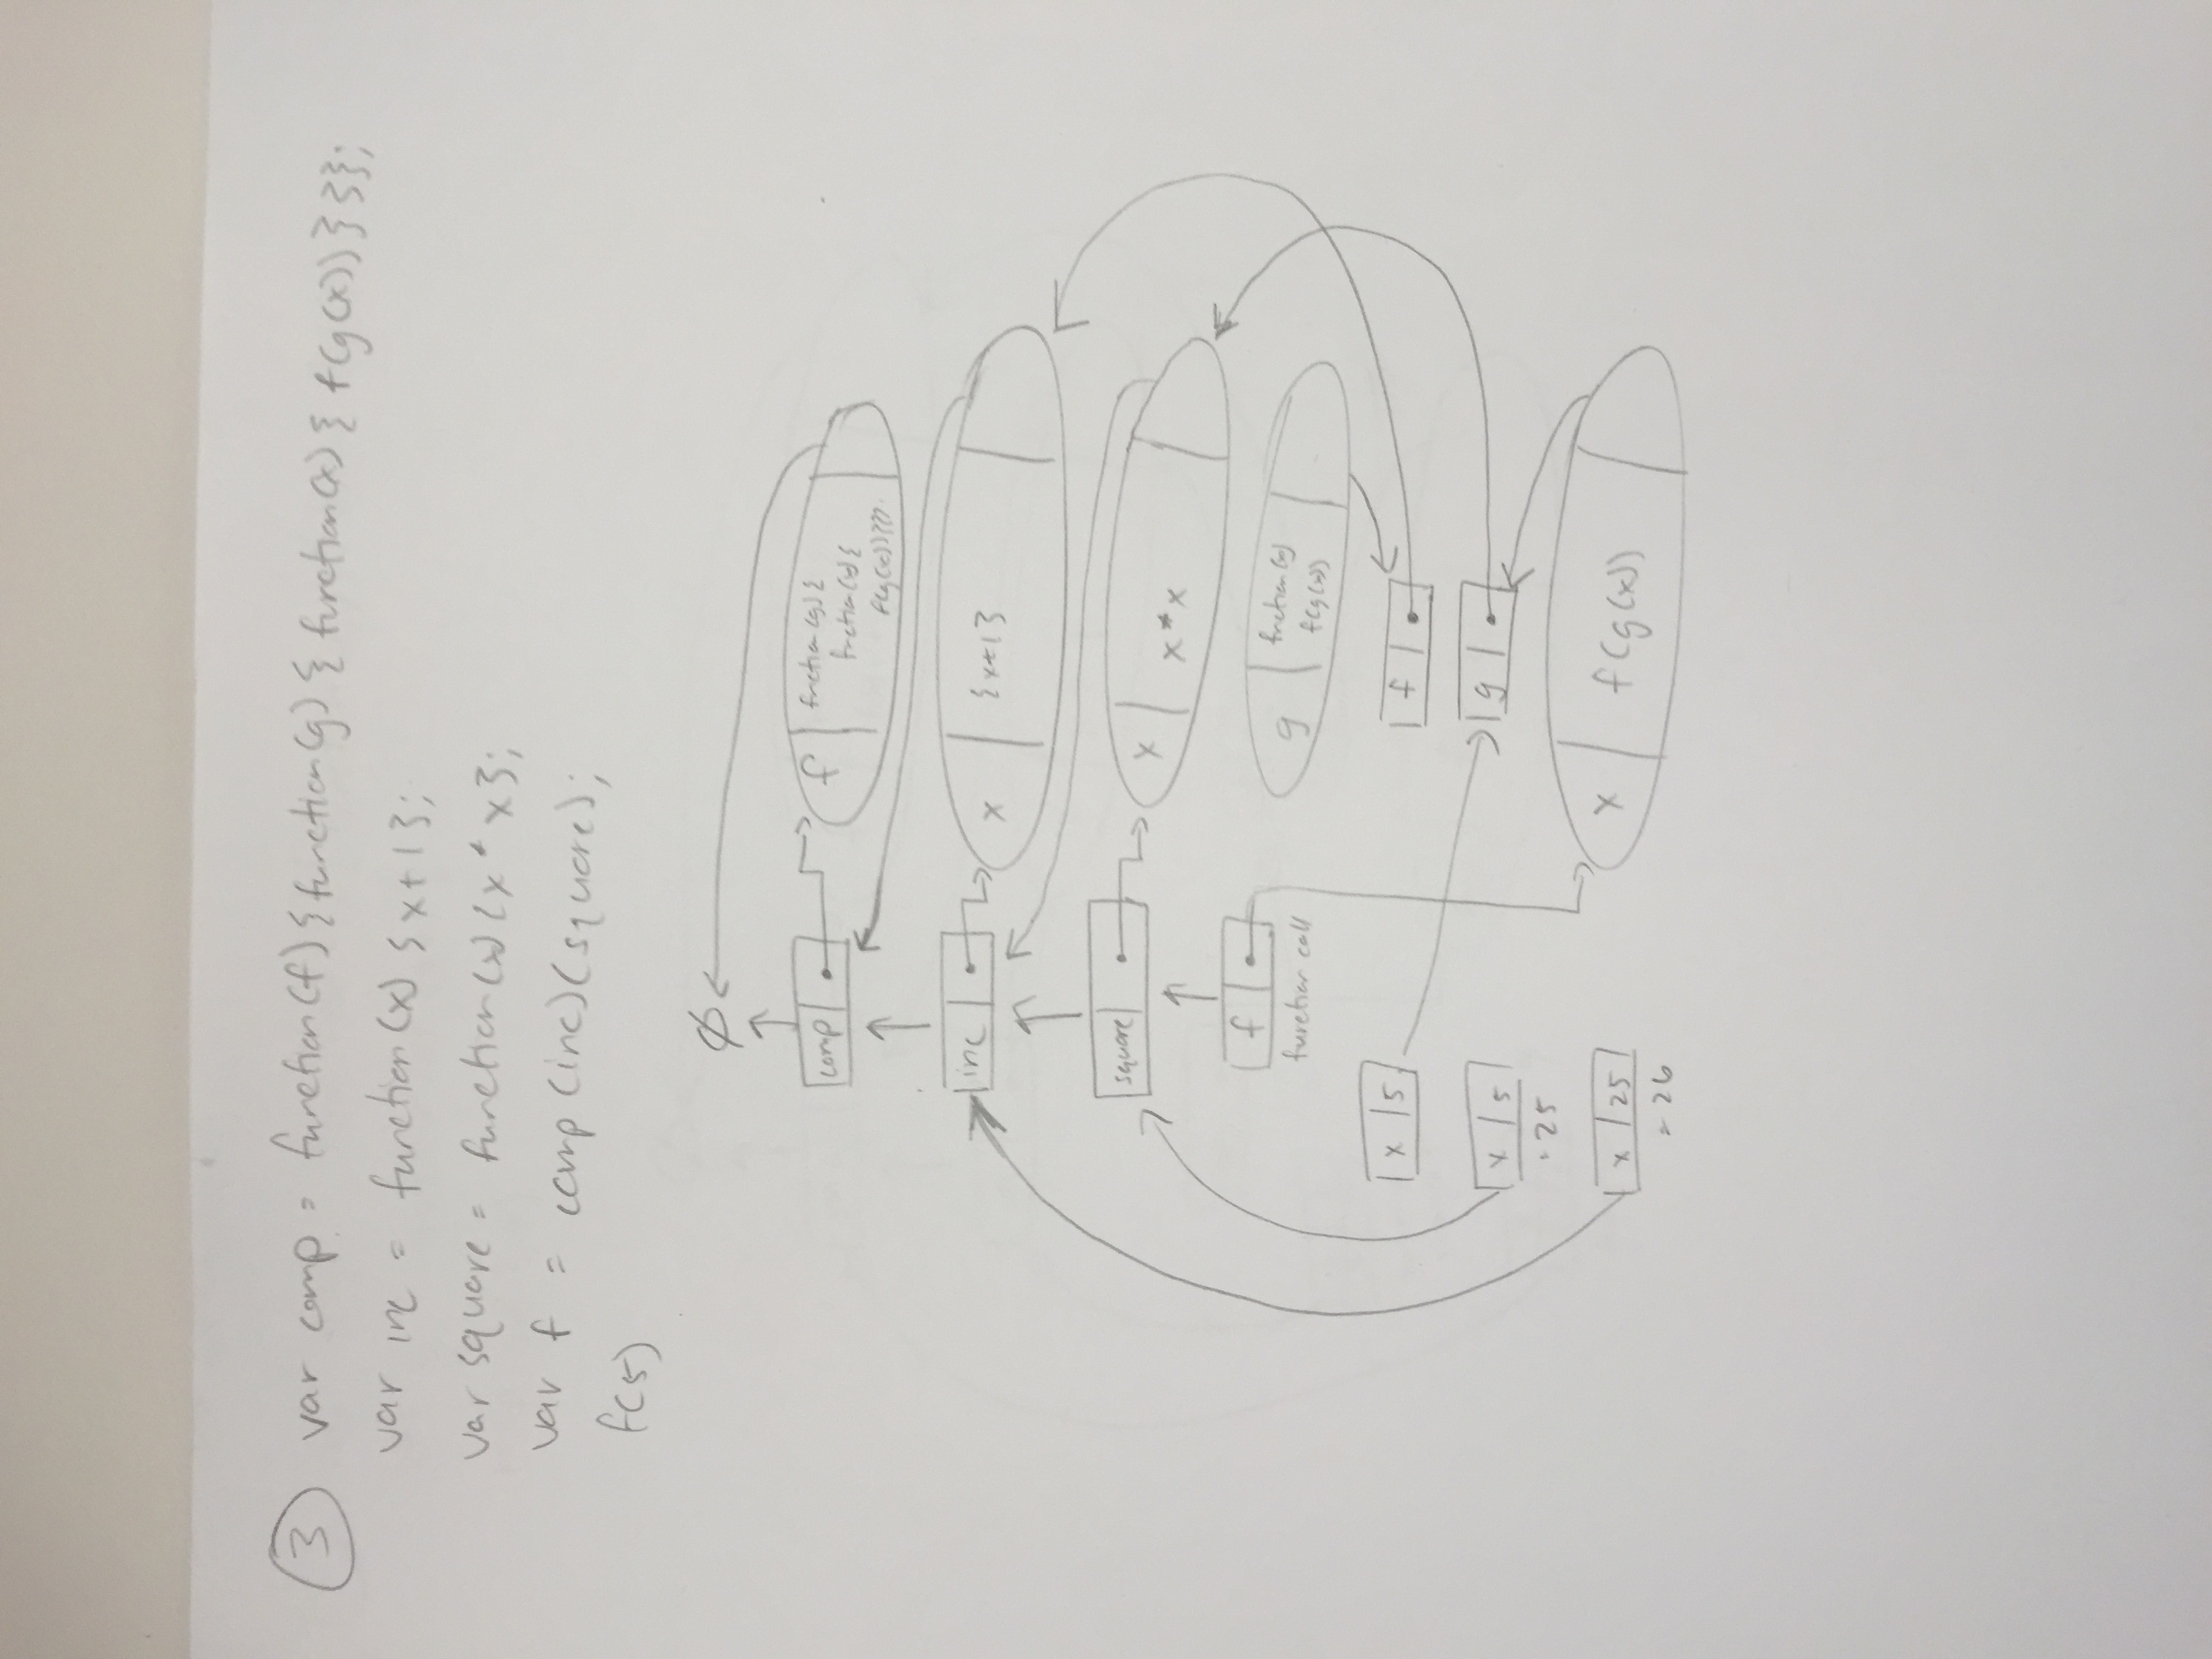 3 var comp = function(f){function(g){function(x){f(g(x))}}};
var inc = function(x){x+1};
var square = function(x){x*x};
var f = comp(inc)(square);
f(5)
∅
comp
f
function(g){
function(x){
f(g(x))}}}
inc
x
{x+1}
square
x
x*x
f
function call
g
function(x)
f(g(x))
x 5
f
x 5
= 25
g
x 25
= 26
x
f(g(x))